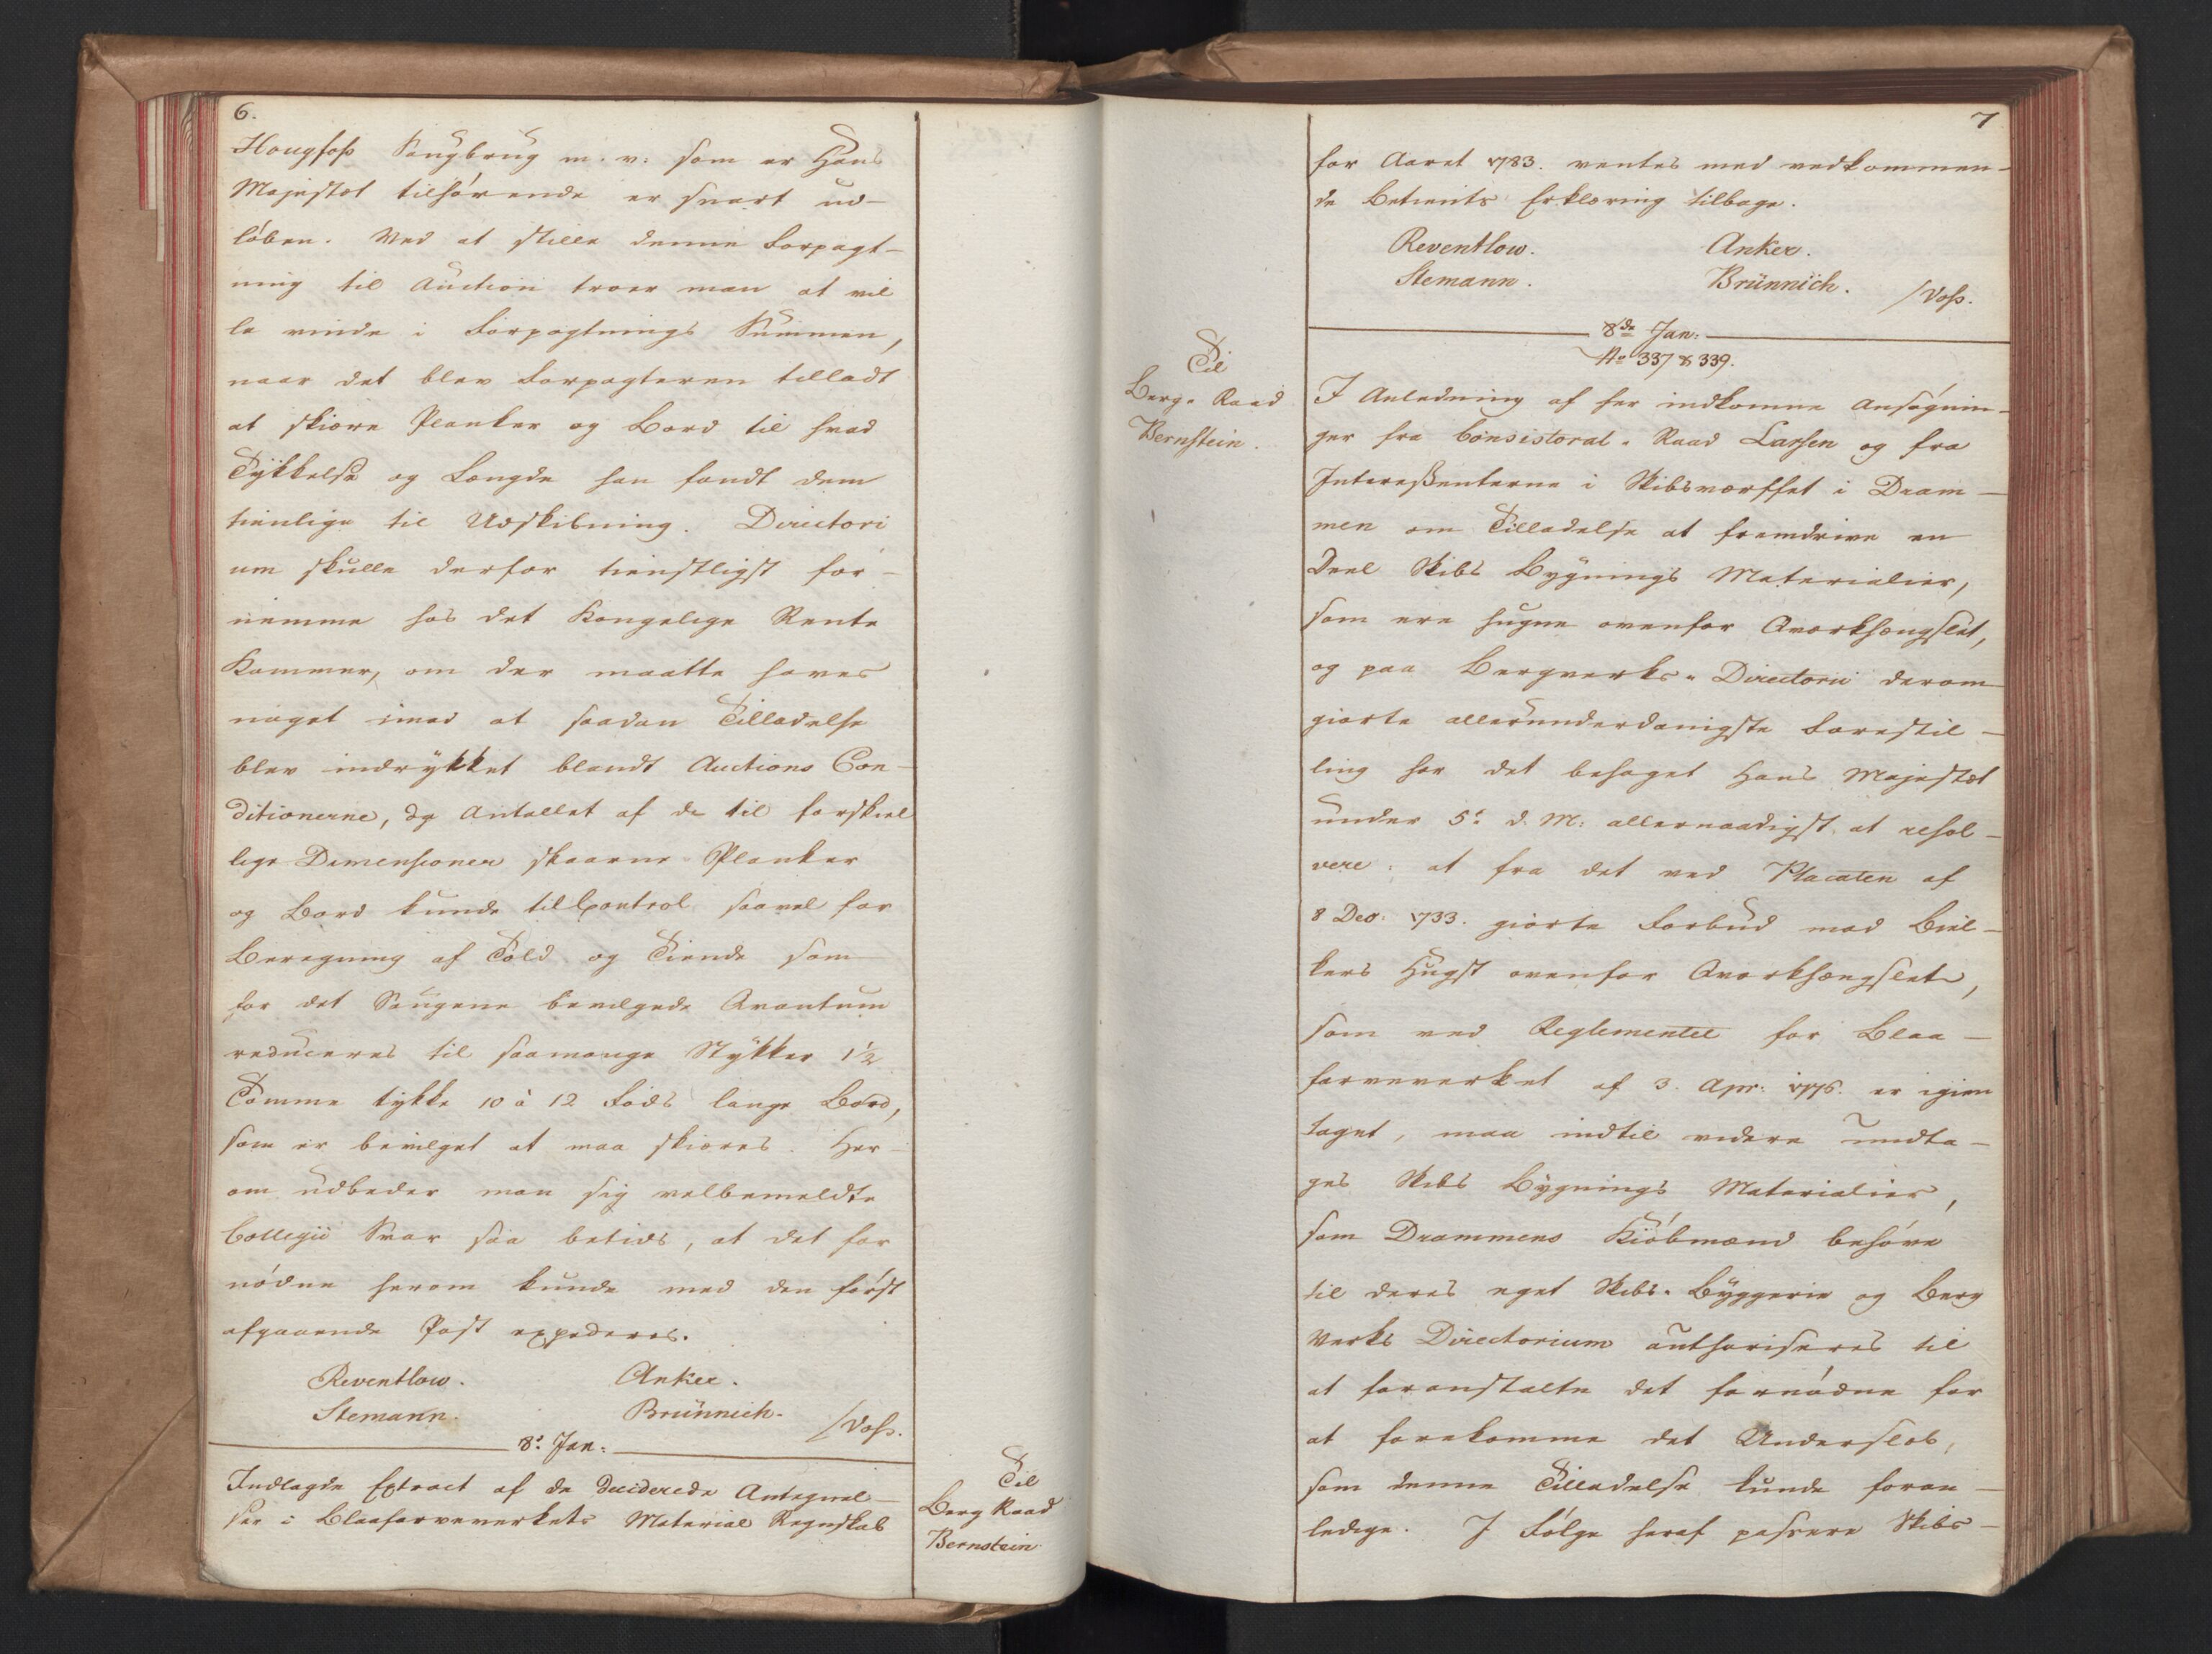 6.
Hougfoss Saugbrug m. v: som er Hans
Majestæt tilhørende er snart ud-
løben. Ved at stille denne Forpagt-
ning til Auction troer man at vil
le vinde i Forpagtnings Summen,
naar det blev Forpagteren tilladt
at skiære Planker og Bord til hvad
Tykkelse og Længde han fandt dem
tienlige til Udskibning. Directori
um skulle derfor tienstligst for-
nemme hos det Kongelige Rente
Kammer, om der maatte haves
noget imod at saadan Tilladelse
blev indrykket blandt Auctions Con-
ditionerne, og Antallet af de til forskiel
lige Dimensioner skaarne Planker
og Bord kunde til Control saavel for
Beregning af Told og Tiende som
for det Saugene bevilgede Qvantum
reduceres til saamange Stykker 1½
Tomme tykke 10 à 12 Fods lange Bord,
som er bevilget at maa skiæres. Her-
om udbeder man sig velbemeldte
Collegii Svar saa betids, at det for
nødne herom kunde med den først
afgaaende Post expederes.
Reventlow. Anker.
Stemann. Brünnich. /Voss.
8: Jan:
Indlagde Extract af de deciderede Antegnel-
ser i Blaafarveverkets Material Regnskab
Til
Berg Raad
Bernstein
7
for Aaret 1783. ventes med vedkommen-
de Betients Erklæring tilbage.
Reventlow. Anker.
Stemann. Brünnich. /Voss.
8de Jan:
No 337 & 339.
Til
Berg-Raad
Bernstein.
I Anledning af her indkomne Ansøgnin-
ger fra Consistoral-Raad Lassen og fra
Interessenterne i Skibsværftet i Dram-
men om Tilladelse at fremdrive en
Deel Skibs Bygnings Materialier,
som ere hugne ovenfor Qværkhængslet,
og paa Bergverks-Directorii derom
giorte allerunderdanigste Forestil-
ling har det behaget Hans Majestæt
under 5: d. M: allernaadigst at resol-
vere: at fra det ved Placaten af
8 Dec: 1733. giorte Forbud mod Biel-
kers Hugst ovenfor Qværkhængslet,
som ved Reglementet for Blaa-
farveverket af 3. Apr: 1776. er igien
taget, maa indtil videre undta-
ges Skibs Bygnings Materialier,
som Drammens Kiøbmænd behøve
til deres eget Skibs-Byggerie og Berg
Verks Directorium authoriseres til
at foranstalte det fornødne for
at forekomme det Underslæb,
som denne Tilladelse kunde foran-
ledige. I Følge heraf passere Skibs-